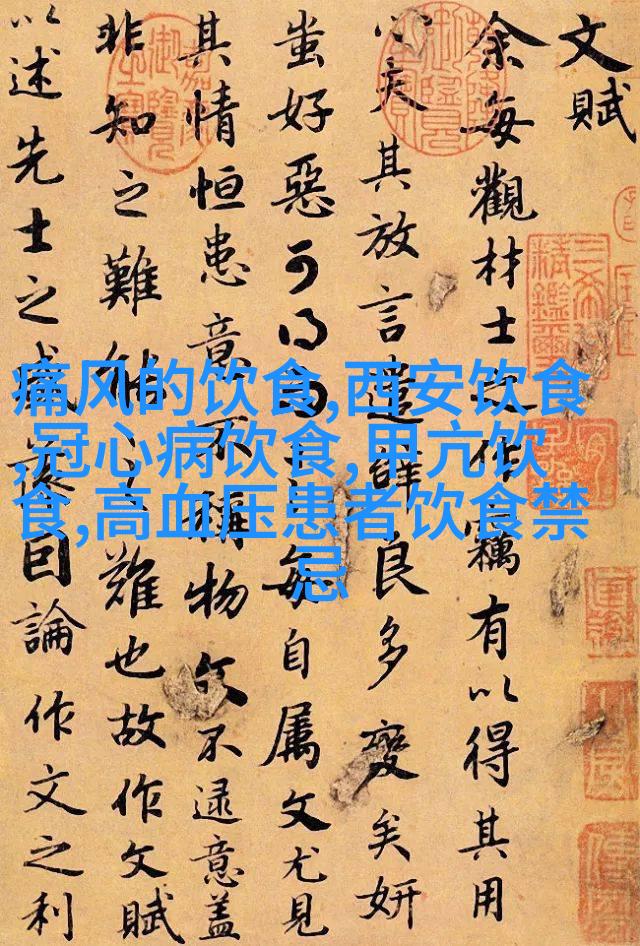 文賦
余每觀材士之作竊有以得其用
心夫其放言遣辭良多變矣妍
蚩好惡可得而言每自属文尤見
其情恒患意不稱物文不逮意盖
非知之難能之難也故作文賦
以述先士之盛藻因論作文之利
痛风的饮食,西安饮食
,冠心病饮食,甲亢饮
食,高血压患者饮食禁
忌